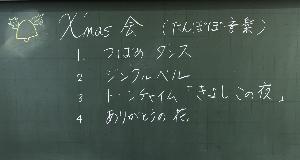 X'mas会 (たんぽぽ音楽)
1. つばめ ダンス
2 ジングルベル
3 トーンチャイム「きよしこの夜」
4 ありがとうの花